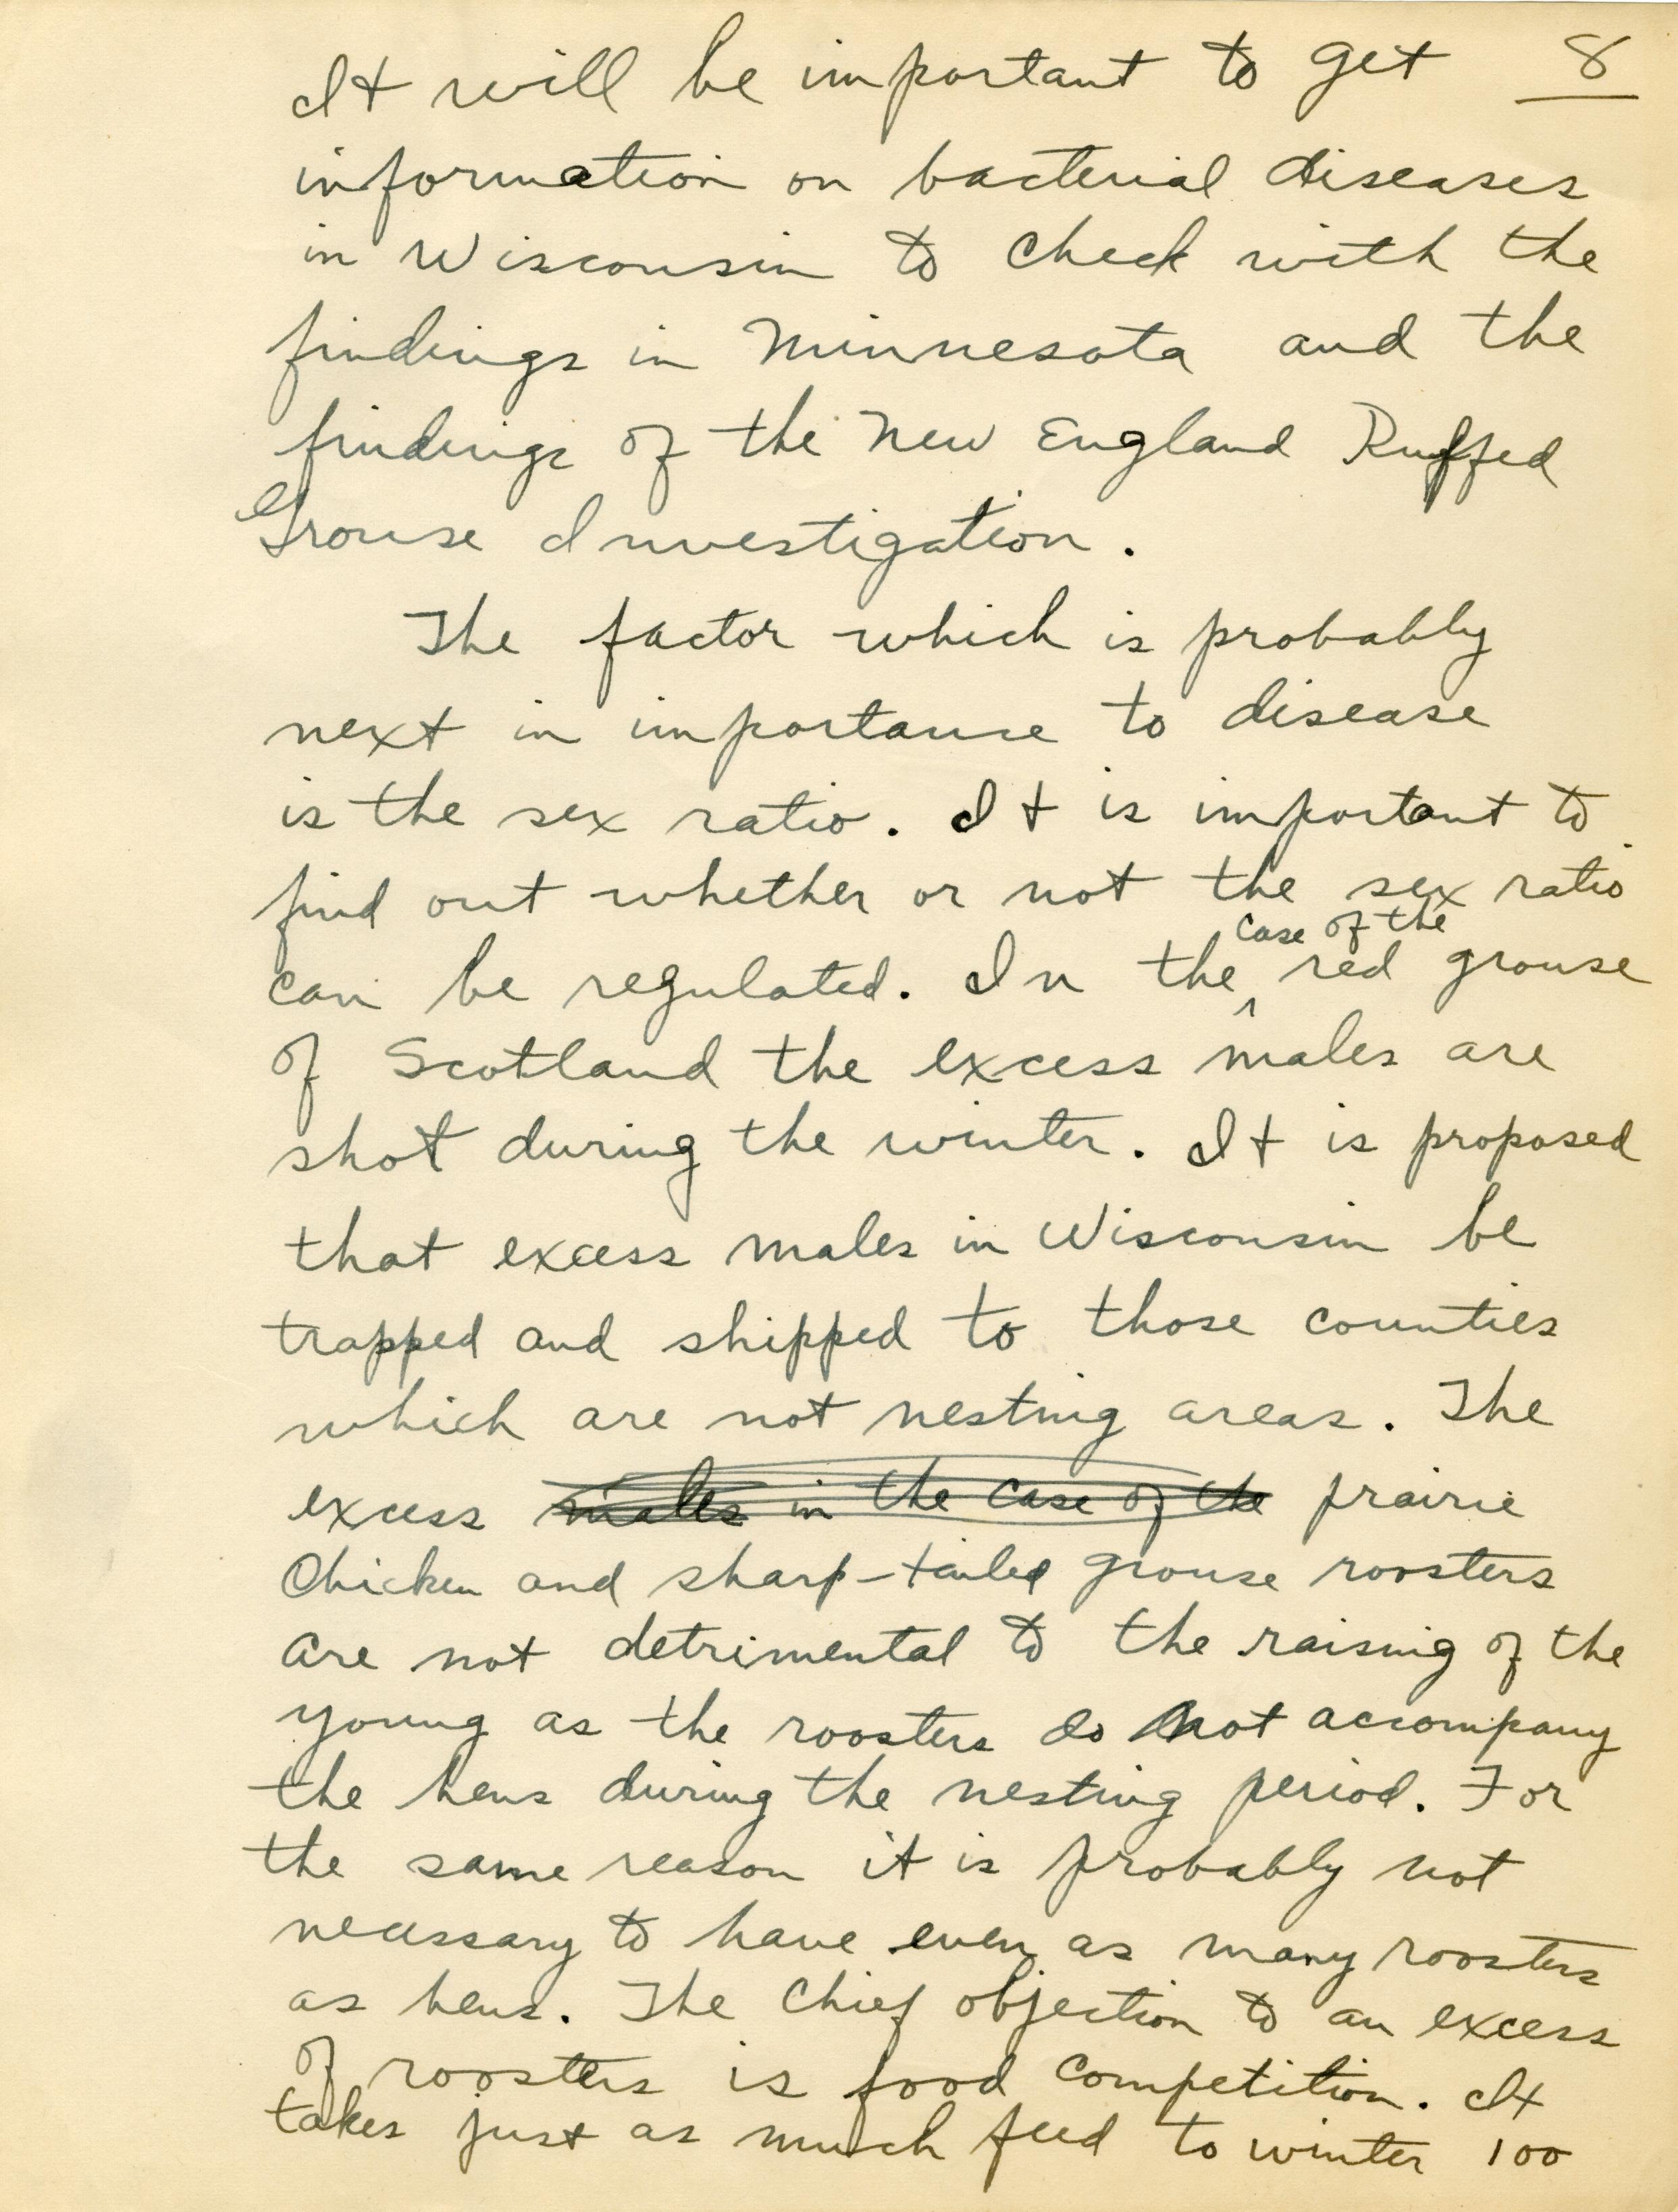 It will be important to get 8
information on bacterial diseases
in Wisconsin to check with the
findings in Minnesota and the
findings of the New England Ruffed
Grouse Investigation.
The factor which is probably
next in importance to disease
is the sex ratio. It is important to
find out whether or not the sex ratio
case of the
can be regulated. In the ^ red grouse
of Scotland the excess males are
shot during the winter. It is proposed
that excess males in Wisconsin be
trapped and shipped to those counties
which are not nesting areas. The
excess males in the case of the prairie
chicken and sharp-tailed grouse roosters
are not detrimental to the raising of the
young as the roosters do not accompany
the hens during the nesting period. For
the same reason it is probably not
necessary to have even as many roosters
as hens. The chief objection to an excess
of roosters is food competition. It
takes just as much feed to winter 100